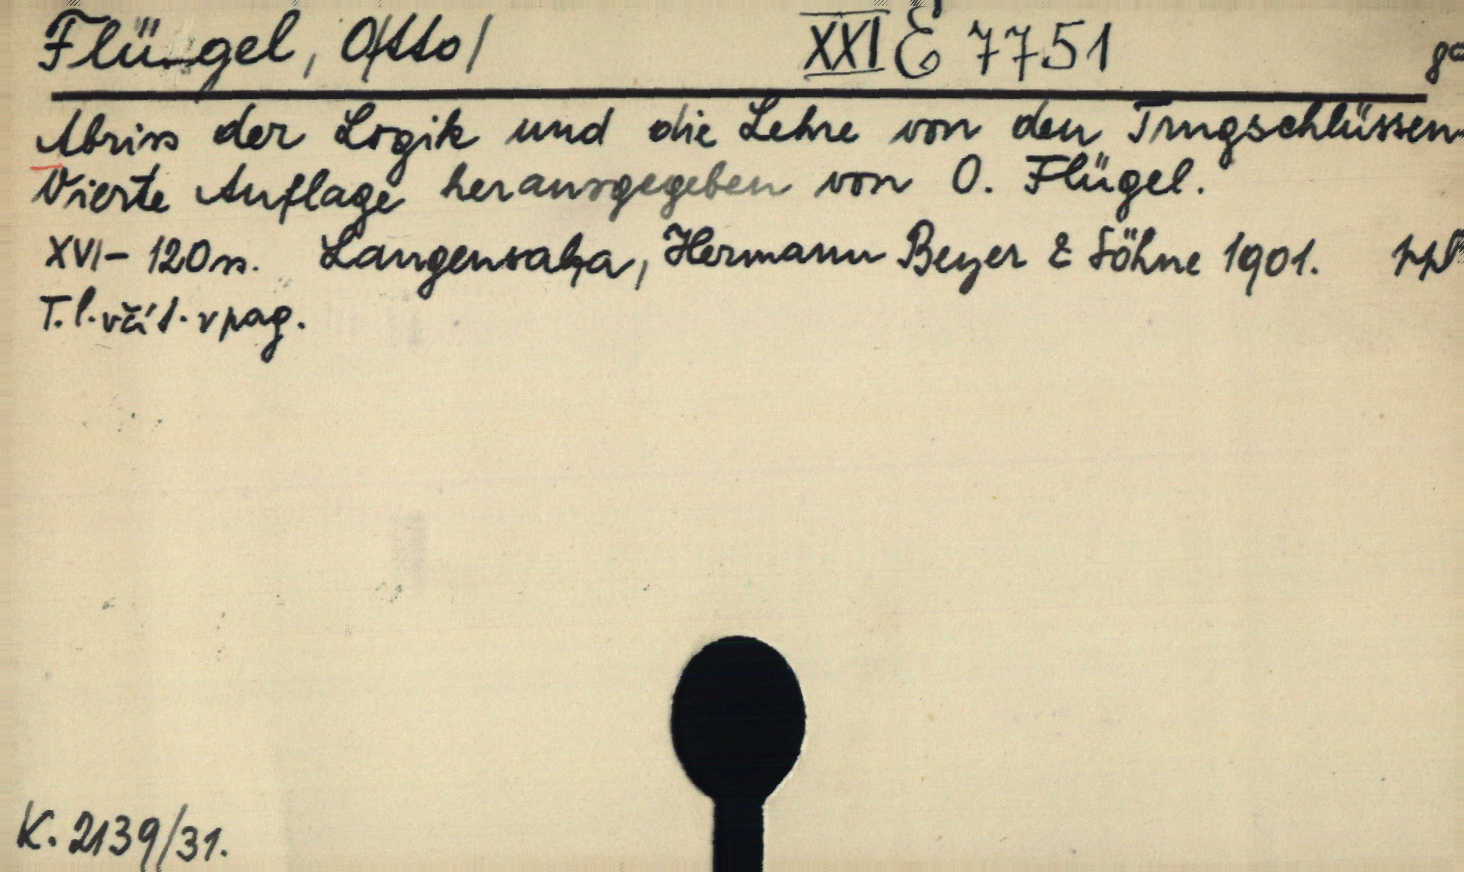 Flügel, O/tto/ XXI E 7751 8°
Abriss der Logik und die Lehre von den Trugschlüssen.
Vierte Auflage herausgegeben von O. Flügel.
XVI - 120 ss. Langensalza, Hermann Beyer & Söhne 1901. ppl
T. l. včít. v pag.
K. 2139/31.